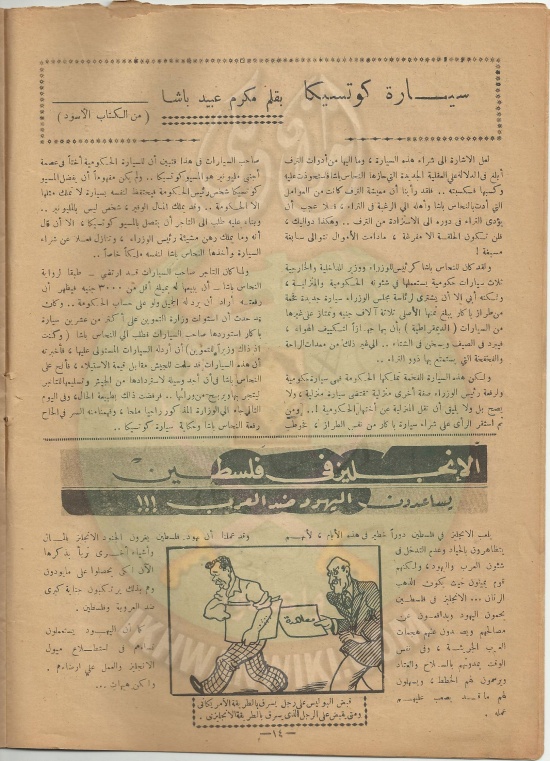 سيارة كوتسيكا
بقلم مكرم عبيد باشا
( من الكتاب الأسود )
لعل الاشارة الى شراء هذه السيارة ، وما اليها من أدوات الترف
أبلغ في الدلالة على العقلية الجديدة التي حازها النحاس باشا
فلقد رأينا أن معيشة الترف كانت من العوامل
التي أدت بالنحاس باشا وأهله الى الرغبة في الثراء ، فلا عجب أن
يؤدى الثراء في دوره الى الاستزادة من الترف .. وهكذا دواليك ،
فلن تستكون الحلقة الا مفرغة ، مادامت الأموال توالى سابغة
مسبغة !
ولقد كان للنحاس باشا كرئيس للوزراء ووزير للداخلية والخارجية
ثلاث سيارات حكومية يستعملها في شئونه الحكومية والمنزلية ،
ولكنه أبى إلا أن يشترى لرئاسة مجلس الوزراء سيارة جديدة فخمة
من طراز باكار يبلغ ثمنها الأصلى ثلاثة آلاف جنيه وتمتاز على غيرها
من السيارات ( الديمقراطية ) بأن بها جهازاً لتكييف الهواء ،
فيبرد في الصيف ويسخن في الشتاء .. الى غير ذلك من معدات الراحة
والفخفخة التي يستمتع بها ذوو الثراء ..
ولكن هذه السيارة الفخمة تملكها الحكومة فهى سيارة حكومية
ولرفعة رئيس الوزراء صفة أخرى منزلية تقتضى سيارة منزلية ، ولا
يصح بل ولا يليق أن تقل المنزلية عن أختها الحكومية ! .. ومن
ثم استقر الرأى على شراء سيارة باكار من نفس الطراز ،
صاحب السيارات في هذا فتبين أن للسيارة الحكومية أختاً في عصمة
مليونير هو المسيو كوتسيكا .. ولم يكن مفهوماً أن يفضل المسيو
كوتسيكا شخص رئيس الحكومة فيحتفظ لنفسه بسيارة لا تملك مثلها
إلا الحكومة .. وقد يملك المال الوفير ، شخص ليس بالمليونير ..
وبناء عليه طلب الى التاجر أن يتصل بالمسيو كوتسيكا ، الا أن قال
أنه وما يملك رهن مشيئة رئيس الوزراء ، وتنازل فعلا عن شراء
السيارة وأخذها النحاس باشا لنفسه ملكاً خاصاً ..
ولما كان التاجر صاحب السيارات قد ارتضى - طبقا لرواية
النحاس باشا - أن يبيعها له بمبلغ أقل من ٣٠٠٠ جنيه فيظهر أن
رفعته أراد أن يرد له الجميل ولو على حساب الحكومة .. وكان
قد حدث أن استولت وزارة التموين على أكثر من عشرين سيارة
باكار استوردها صاحب السيارات فطلب الى النحاس باشا ( وكنت
اذ ذاك وزيراً للتموين ) أن أرد له السيارات المستولى عليها ، فأخبرته
أن هذه السيارات قد سلمت للجيش مقابل قيمة الاستيلاء ، فألح على
النحاس باشا في أن أجد وسيلة لاستردادها من الجيش وتسليمها للتاجر
ليتجر بها ويربح من ورائها .. فرفضت ذلك بطبيعة الحال ، وفى اليوم
التالى جاء الى الوزارة ، وفهمنا منه السر في الحاح
رفعة النحاس باشا وحكاية سيارة كوتسيكا ..
الإنجليز في فلسطين
يساعدون اليهود ضد العرب !!!
يلعب الانجليز في فلسطين دوراً خطير في هذه الأيام ، لأنهم
يتظاهرون بالحياد وعدم التدخل في
شئون العرب واليهود ، ولكنهم
قوم يميلون حيث يكون الذهب
الرنان ... الانجليز في فلسطين
يحمون اليهود ويدافعون عن
مصالحهم ويصدون عنهم هجمات
العرب الجريئة ، وفى نفس
الوقت يمدونهم بالسلاح والعتاد
ويرسمون لهم الخطط ، ويسهلون
لهم ما قد يصعب عليهم
عمله .
وقد عملنا أن يهود فلسطين يغرون الجنود الانجليز بالمال
وأشياء أخرى نربأ بذكرها
الآن لكى يحصلوا على مايودون
وهم بذلك يرتكبون جناية كبرى
ضد العروبة وفلسطين .
كما أن اليهود يستعملون
نساءهم في استطلاع ميول
الانجليز والعمل على ارضاءهم .
ولكن هيهات ...
معاهدة
قبض البوليس على رجل يسرق بالطريقة الأمريكانى
ومتى يقبض على الرجل الذى يسرق بالطريقة الانجليزى .
— ١٤ —